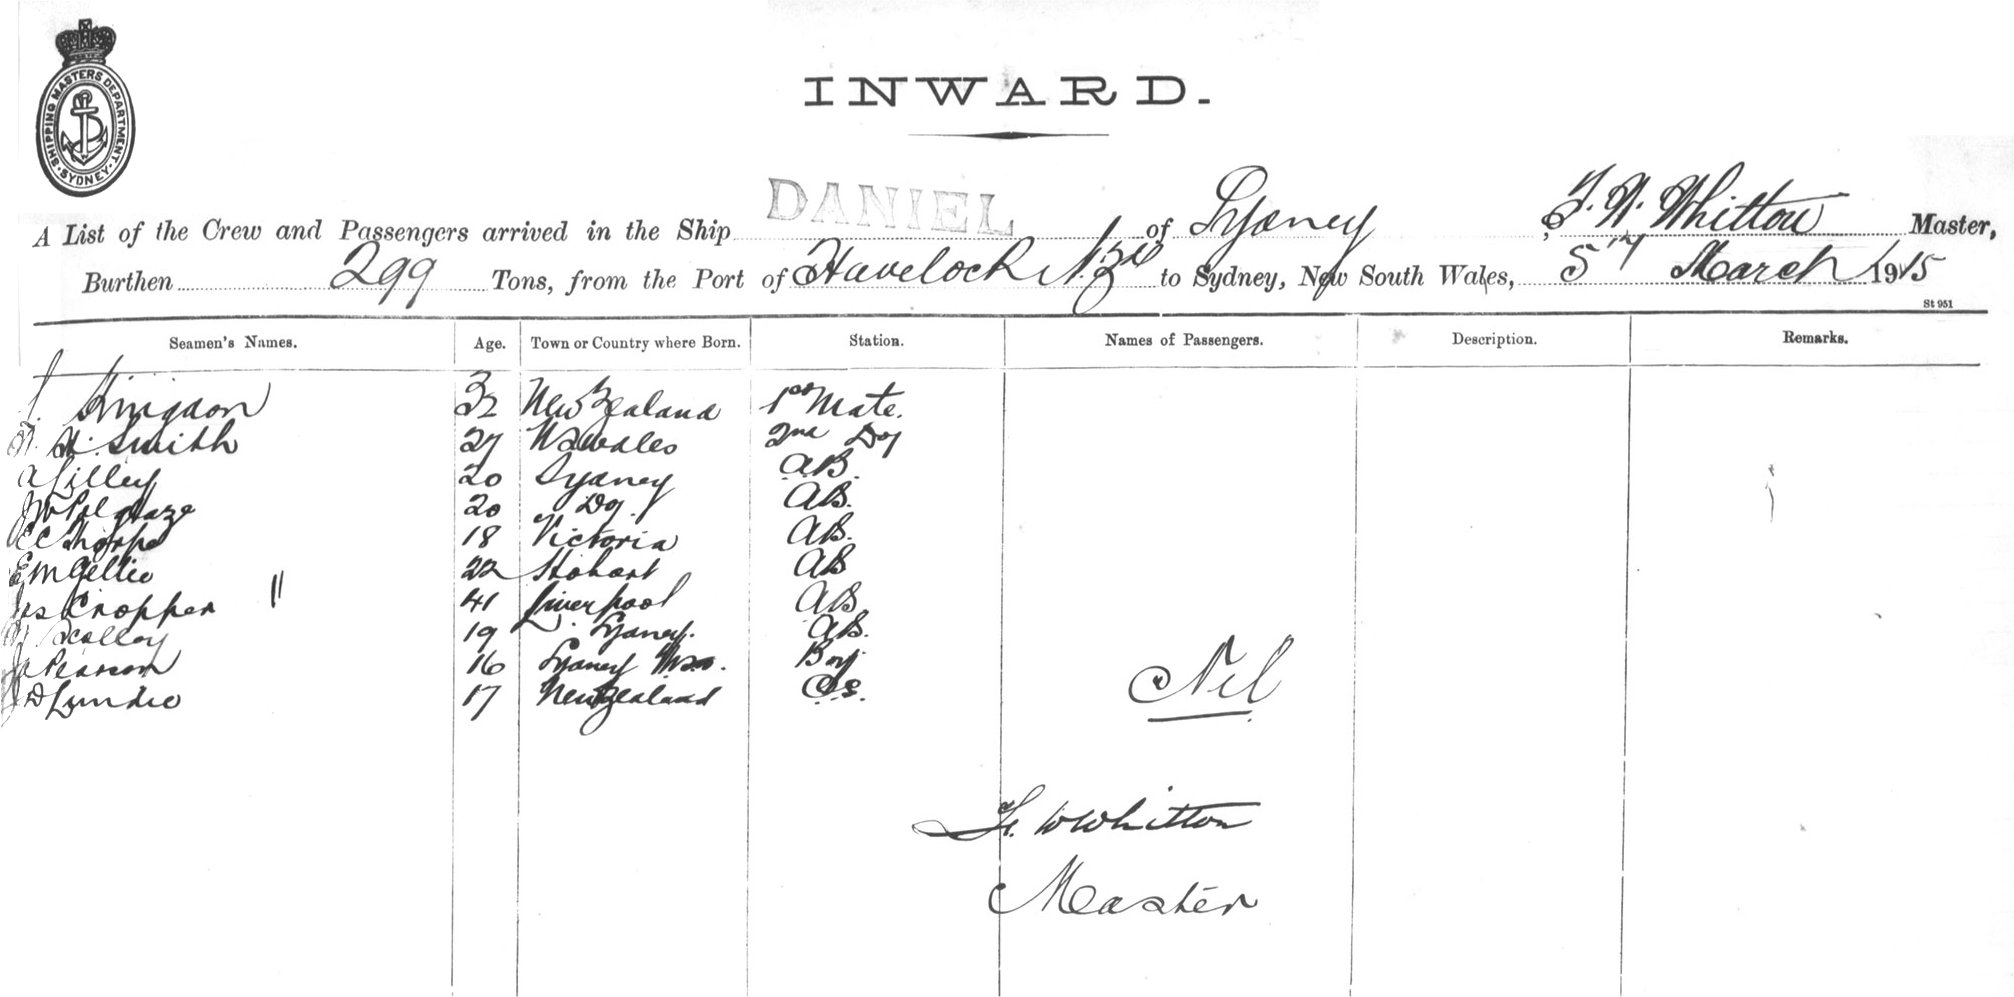 SHIPPING MASTERS DEPARTMENT · SYDNEY ·
INWARD.
A List of the Crew and Passengers arrived in the Ship DANIEL of Sydney, F. W. Whitton Master,
Burthen 299 Tons, from the Port of Havelock N. Zld to Sydney, New South Wales, 5th March 1915
St 951
Seamen's Names. Age. Town or Country where Born. Station. Names of Passengers. Description. Remarks.
32 New Zealand 1st Mate.
H. Smith 27 NSWales 2nd Do
A Lilley 20 Sydney AB.
20 Do. AB.
E C Thorpe 18 Victoria AB.
E M Gellie 22 Hobart AB
Jas Cropper " 41 Liverpool AB
19 Sydney. AB.
Pearson 16 Sydney Boy
D Lundie 17 New Zealand OS.
Nil
F. W Whitton
Master